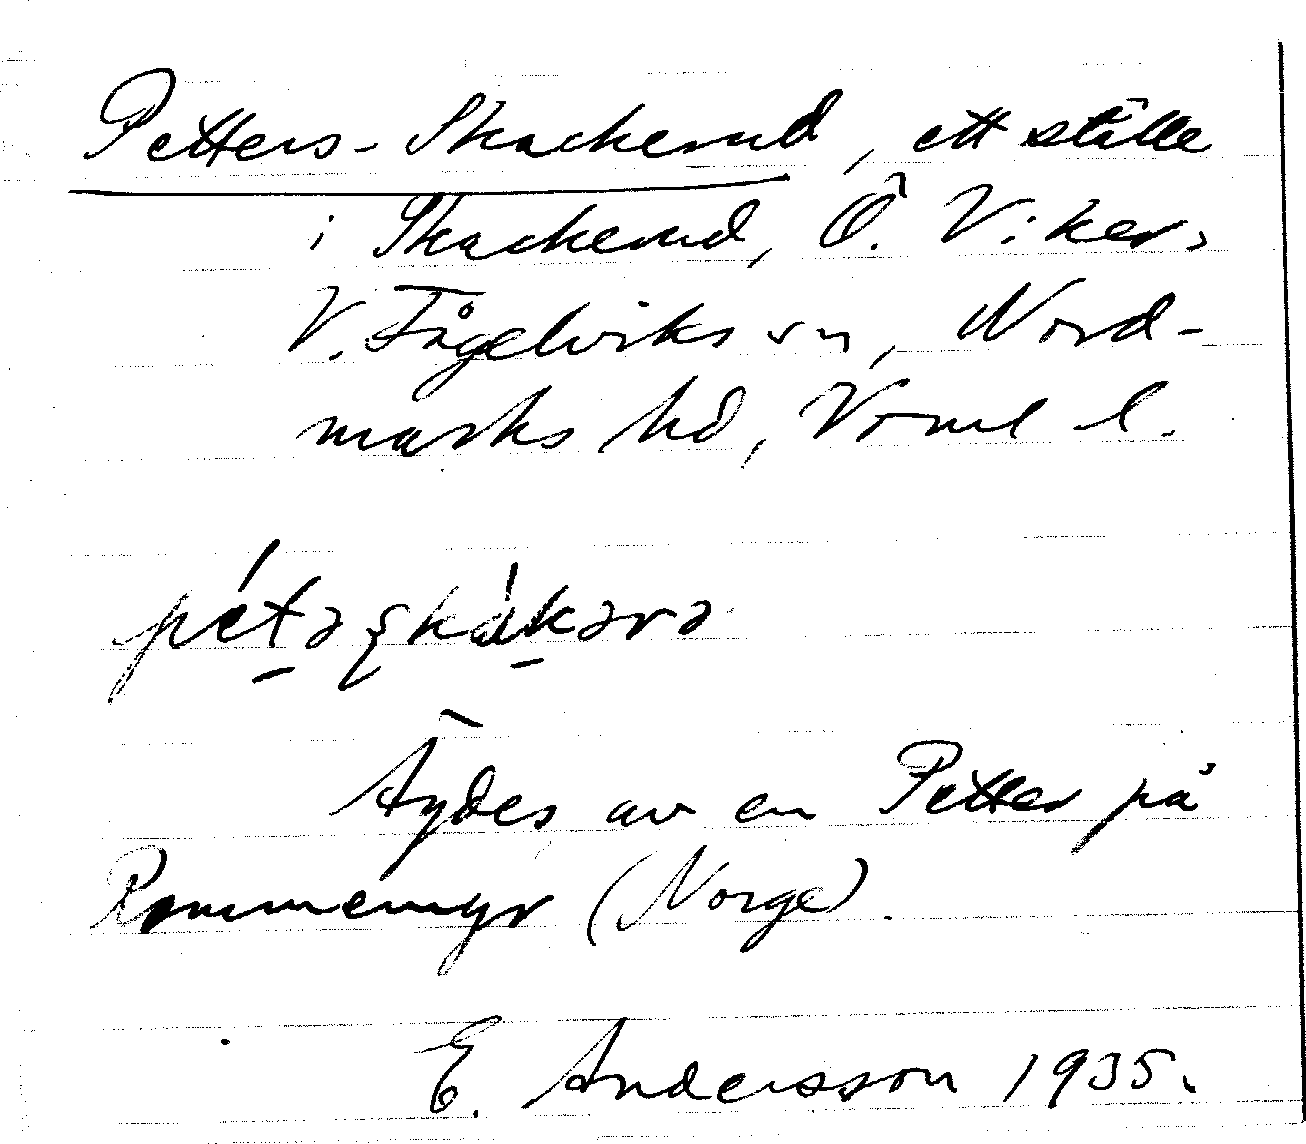 Petters-Skackerud, ett ställe
i Skackerud, Ö. Viker,
V. Fågelviks sn, Nord-
marks hd, Vrml l.
pétaʂkákərə
Ägdes av en Petter på
Rommemyr (Norge).
E. Andersson 1935.